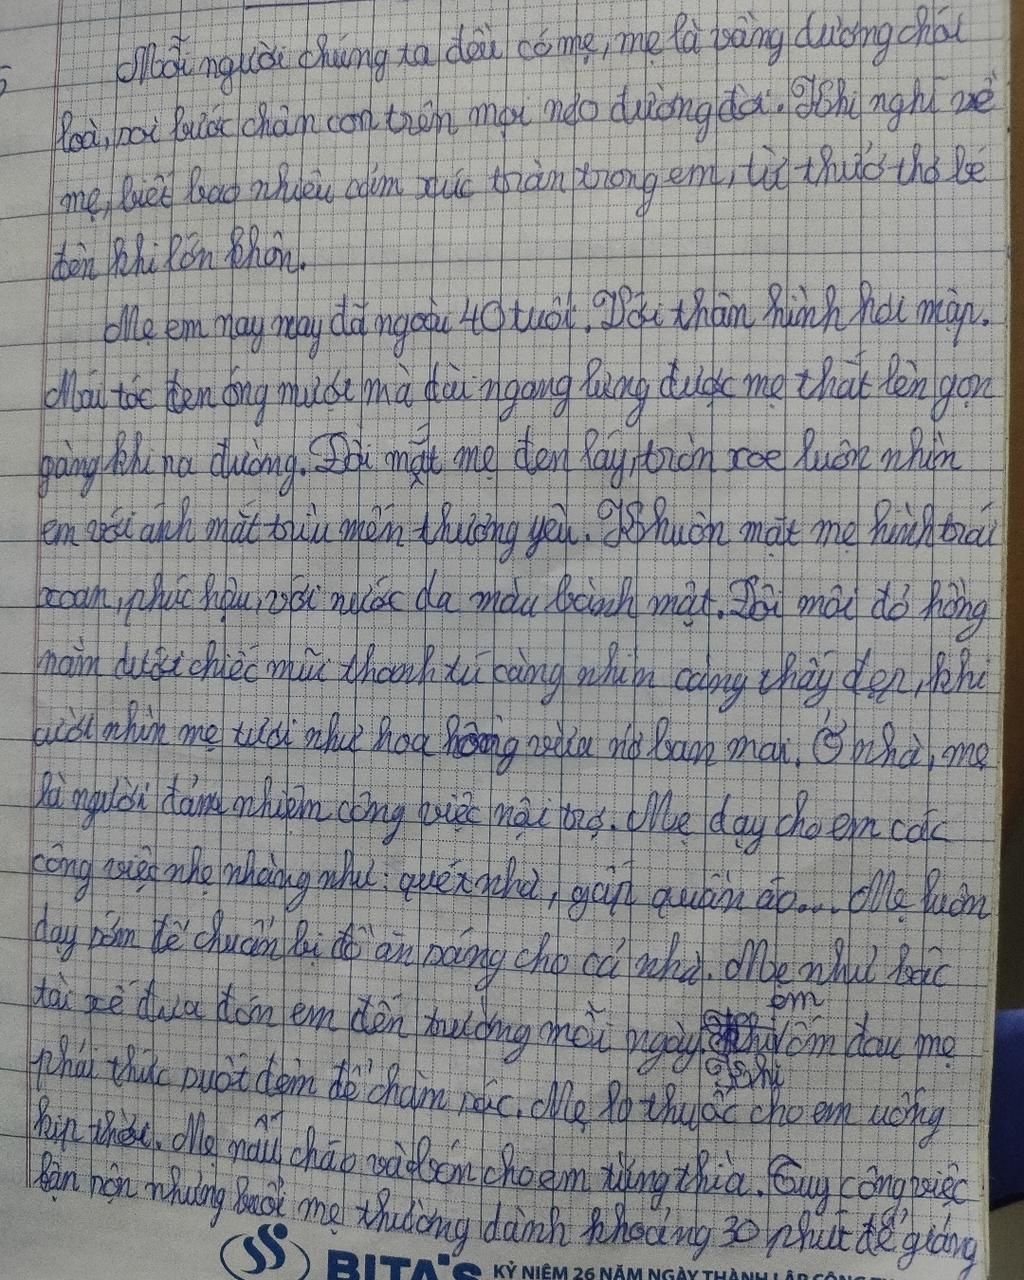 Mỗi người chúng ta đều có mẹ, mẹ là vầng dương chói
loà, soi bước chân con trên mọi nẻo đường đời. Khi nghĩ về
mẹ, biết bao nhiêu cảm xúc tràn trong em, từ thuở thơ bé
đến khi lớn khôn.
Mẹ em nay nay đã ngoài 40 tuổi. Với thân hình hơi mập.
Mái tóc đen óng mượt mà dài ngang lưng được mẹ thắt lên gọn
gàng khi ra đường. Đôi mắt mẹ đen láy, tròn xoe luôn nhìn
em với ánh mắt trìu mến thương yêu. Khuôn mặt mẹ hình trái
xoan, phúc hậu, với nước da màu bánh mật. Đôi môi đỏ hồng
nằm dưới chiếc mũi thanh tú càng nhìn càng thấy đẹp, khi
cười nhìn mẹ tươi như hoa hồng vừa nở ban mai. Ở nhà, mẹ
là người đảm nhiệm công việc nội trợ. Mẹ dạy cho em các
công việc nhẹ nhàng như: quét nhà, gấp quần áo... Mẹ luôn
dạy sớm để chuẩn bị đồ ăn sáng cho cả nhà. Mẹ như bác
tài xế đưa đón em đến trường mỗi ngày. Khi em ốm đau mẹ
phải thức suốt đêm để chăm sóc. Mẹ lo thuốc cho em uống
kịp thời. Mẹ nấu cháo và bón cho em từng thìa. Tuy công việc
bận rộn nhưng buổi mẹ thường dành khoảng 30 phút để giảng
BITA'S KỶ NIỆM 26 NĂM NGÀY THÀNH LẬP CÔNG